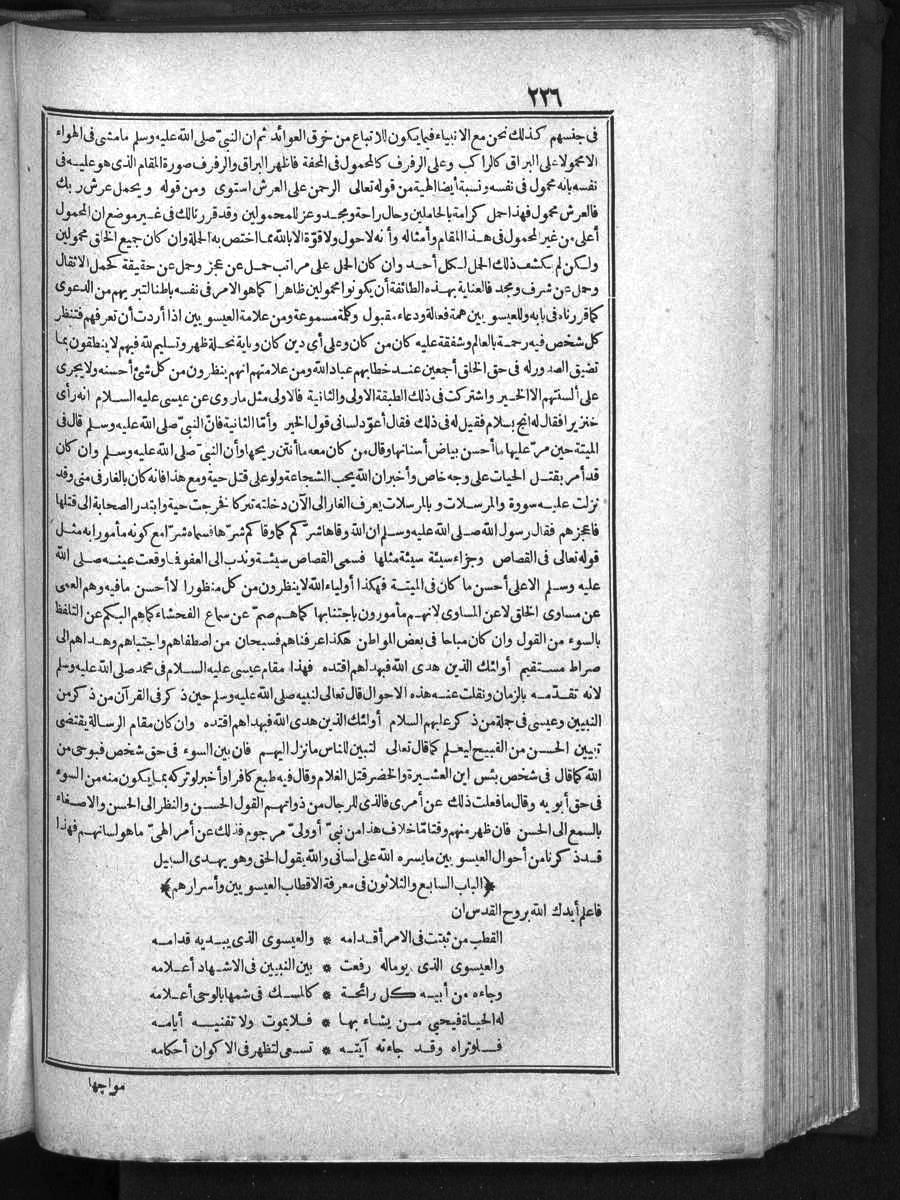 ٢٢٦
فى جنسهم كذلك نحن مع الانبياء فيما يكون للاتباع من خرق العوائد ثم ان النبىّ صلى الله عليه وسلم ما مشى فى الهواء
الا محمولا على البراق كالراكب وعلى الرفرف كالمحمول فى المحفة فاظهر البراق والرفرف صورة المقام الذى هو عليه فى
نفسه بانه محمول فى نفسه ونسبة أيضا الهية من قوله تعالى الرحمن على العرش استوى ومن قوله ويحمل عرش ربك
فالعرش محمول فهذا حمل كرامة بالحاملين وحال راحة ومجد وعز للمحمولين وقد قررنا لك فى غير موضع ان المحمول
أعلى من غير المحمول فى هذا المقام وأمثاله وأنه لا حول ولا قوّة الا بالله مما اختص به الحملة وان كان جميع الخلق محمولين
ولكن لم يكشف ذلك الحمل لكل أحد وان كان الحمل على مراتب حمل عن عجز وحمل عن حقيقة كحمل الاثقال
وحمل عن شرف ومجد فالعناية بهذه الطائفة أن يكونوا محمولين ظاهرا كما هو الامر فى نفسه باطنا لتبريهم من الدعوى
كما قررناه فى بابه وللعيسويين همة فعالة ودعاء مقبول وكلمة مسموعة ومن علامة العيسويين اذا أردت أن تعرفهم فتنظر
كل شخص فيه رحمة بالعالم وشفقة عليه كان من كان وعلى أى دين كان وباية نحلة ظهر وتسليم لله فيهم لا ينطقون بما
تضيق الصدور له فى حق الخلق أجمعين عند خطابهم عباد الله ومن علامتهم انهم ينظرون من كل شئ أحسنه ولا يجرى
على ألسنتهم الا الخير واشتركت فى ذلك الطبقة الاولى والثانية فالاولى مثل ما روى عن عيسى عليه السلام انه رأى
خنزيرا فقال له انج بسلام فقيل له فى ذلك فقال أعوّد لسانى قول الخير وأمّا الثانية فانّ النبىّ صلى الله عليه وسلم قال فى
الميتة حين مرّ عليها ما أحسن بياض أسنانها وقال من كان معه ما أنتن ريحها وأن النبىّ صلى الله عليه وسلم وان كان
قد أمر بقتل الحيات على وجه خاص وأخبر ان الله يحب الشجاعة ولو على قتل حية ومع هذا فانه كان بالغار فى منى وقد
نزلت عليه سورة والمرسلات وبالمرسلات يعرف الغار الى الآن دخلته تبركا فخرجت حية وابتدر الصحابة الى قتلها
فاعجزهم فقال رسول الله صلى الله عليه وسلم ان الله وقاها شرّكم كما وقاكم شرّها فسماه شرّا مع كونه مأمورا به مثل
قوله تعالى فى القصاص وجزاء سيئة سيئة مثلها فسمى القصاص سيئة وندب الى العفو فما وقعت عينه صلى الله
عليه وسلم الا على أحسن ما كان فى الميتة فهكذا أولياء الله لا ينظرون من كل منظور الا أحسن ما فيه وهم العمى
عن مساوى الخلق لا عن المساوى لانهم مأمورون باجتنابها كما هم صمّ عن سماع الفحشاء كما هم البكم عن التلفظ
بالسوء من القول وان كان مباحا فى بعض المواطن هكذا عرفناهم فسبحان من اصطفاهم واجتباهم وهداهم الى
صراط مستقيم أولئك الذين هدى الله فبهداهم اقتده فهذا مقام عيسى عليه السلام فى محمد صلى الله عليه وسلم
لانه تقدّمه بالزمان ونقلت عنه هذه الاحوال قال تعالى لنبيه صلى الله عليه وسلم حين ذكر فى القرآن من ذكر من
النبيين وعيسى فى جملة من ذكر عليهم السلام أولئك الذين هدى الله فبهداهم اقتده وان كان مقام الرسالة يقتضى
تبيين الحسن من القبيح ليعلم كما قال تعالى لتبين للناس ما نزل اليهم فان بين السوء فى حق شخص فبوحى من
الله كما قال فى شخص بئس ابن العشيرة والخضر قتل الغلام وقال فيه طبع كافرا وأخبر لو تركه بما يكون منه من السوء
فى حق أبويه وقال ما فعلت ذلك عن أمرى فالذى للرجال من ذواتهم القول الحسن والنظر الى الحسن والاصغاء
بالسمع الى الحسن فان ظهر منهم وقتا مّا خلاف هذا من نبىّ أو ولىّ مرجوم فذلك عن أمر الهىّ ما هو لسانهم فهذا
قد ذكرنا من أحوال العيسويين ما يسره الله على لسانى والله يقول الحق وهو يهدى السبيل
﴿الباب السابع والثلاثون فى معرفة الاقطاب العيسويين وأسرارهم﴾
فاعلم أيدك الله بروح القدس ان
القطب من ثبتت فى الامر أقدامه * والعيسوى الذى يبديه قدامه
والعيسوى الذى يوماله رفعت * بين النبيين فى الاشهاد أعلامه
وجاءه من أبيه كل رائحة * كالمسك فى شمها بالوحى أعلامه
له الحياة فيحيى من يشاء بها * فلا يموت ولا تفنيه أيامه
فلو تراه وقد جاءته آيته * تسعى لتظهر فى الاكوان أحكامه
مواجها